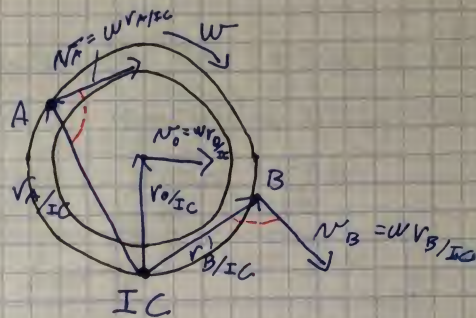 v_A = ω r_A/IC
ω
A
v_0 = ω r_0/IC
r_A/IC
r_0/IC
B
r_B/IC
v_B = ω r_B/IC
IC